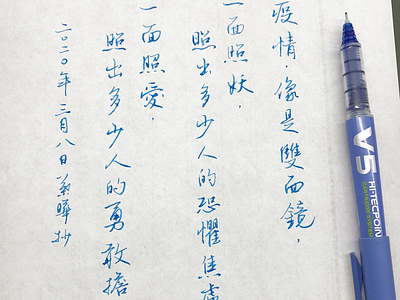 疫情，像是雙面鏡，
一面照妖，
照出多少人的恐懼焦慮
一面照愛，
照出多少人的勇敢擔
二〇二〇年三月八日 抄
V5
HI-TECPOINT
CARTRIDGE SYSTEM